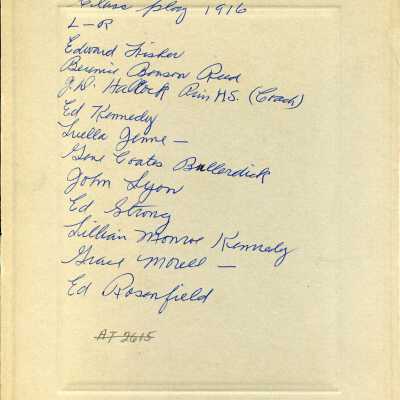 Class play 1916
L-R
Edward Fisher
Bernnie Benson Reed
J.D. Hallock Prin H.S. (Coach)
Ed Kennedy
Luella Jenne -
Gene Coates Bullerdick
John Lyon
Ed Strong
Lillian Monroe Kennedy
Grace Morell -
Ed Rosenfield
AT 2615